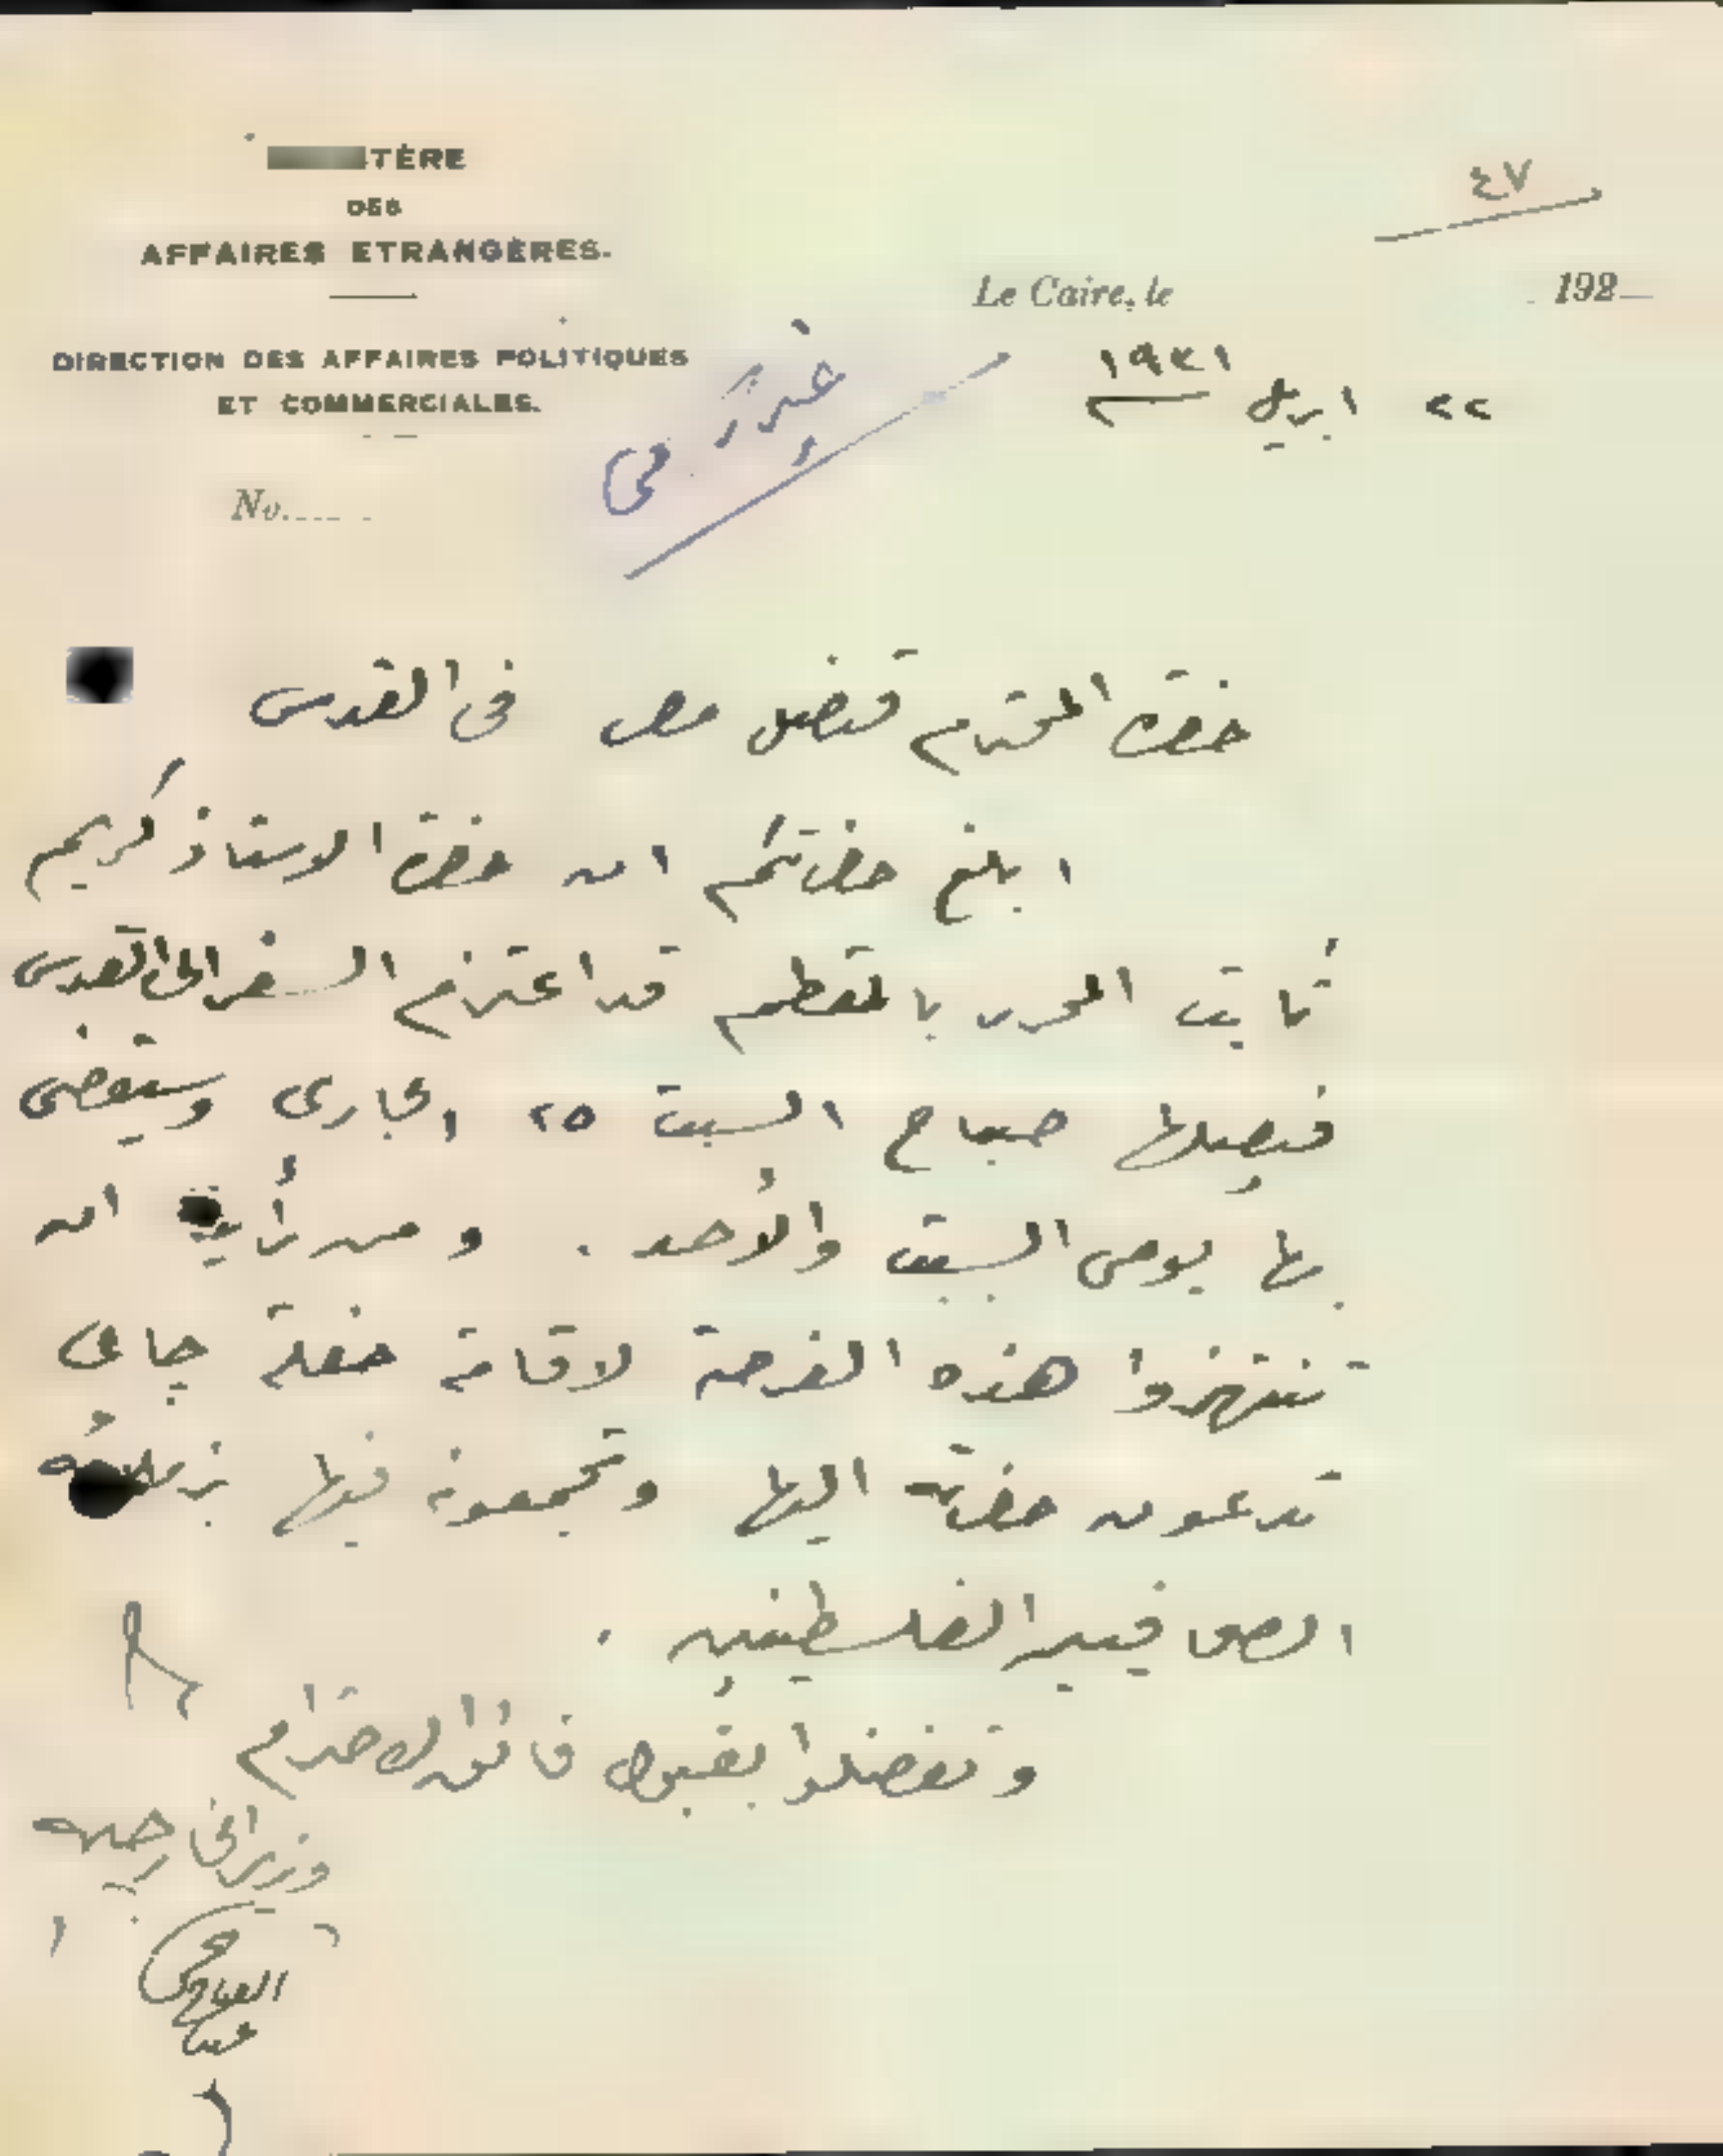 TÈRE
DES
AFFAIRES ETRANGÈRES.
DIRECTION DES AFFAIRES POLITIQUES
ET COMMERCIALES.
No.
٤٧
Le Caire, le 192
٢٢ ابريل
حضرة المحترم قنصل مصر فى القدس
ابلغ حضرتكم ان حضرة الاستاذ كريم
ثابت المحرر بالمقطم قد اعتزم السفر الى القدس
فيصلها صباح السبت ٢٥ الجارى وسيقضى
بها يومى السبت والأحد . ومن رأيى ان
تنتهزوا هذه الفرصة لاقامة حفلة چاى
تدعون حضرته اليها وتجمعون فيها بزملائه
الصحافيين الفلسطينيين .
وتفضلوا بقبول فائق الاحترام